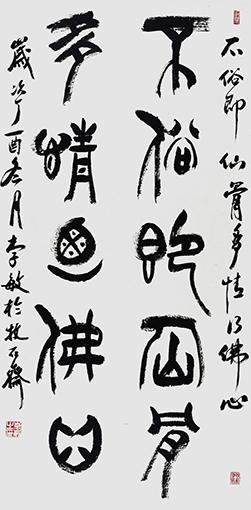 不俗即仙骨多情乃佛心
不俗即仙骨
多情迺佛心
歲次丁酉冬月李敏於牧石齋